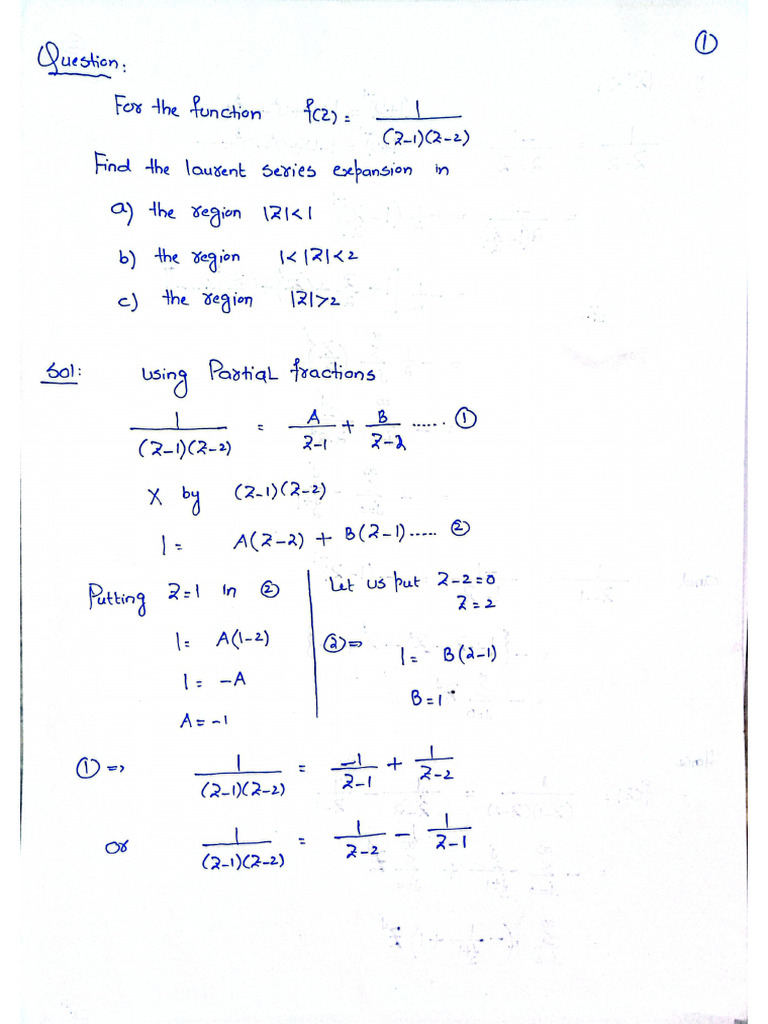 ①
Question:
For the function f(z) = 1/(z-1)(z-2)
Find the laurent series expansion in
a) the region |z|<1
b) the region 1<|z|<2
c) the region |z|>2
Sol: using Partial fractions
1/(z-1)(z-2) = A/z-1 + B/z-2 ...... ①
X by (z-1)(z-2)
1 = A(z-2) + B(z-1)..... ②
Putting z=1 in ②
1 = A(1-2)
1 = -A
A = -1
Let us put z-2=0
z = 2
②⇒ 1 = B(2-1)
B = 1
①⇒ 1/(z-1)(z-2) = -1/z-1 + 1/z-2
or 1/(z-1)(z-2) = 1/z-2 - 1/z-1